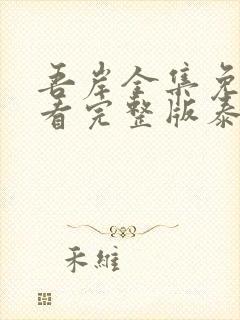 吾岸全集免
看完整版泰
禾維